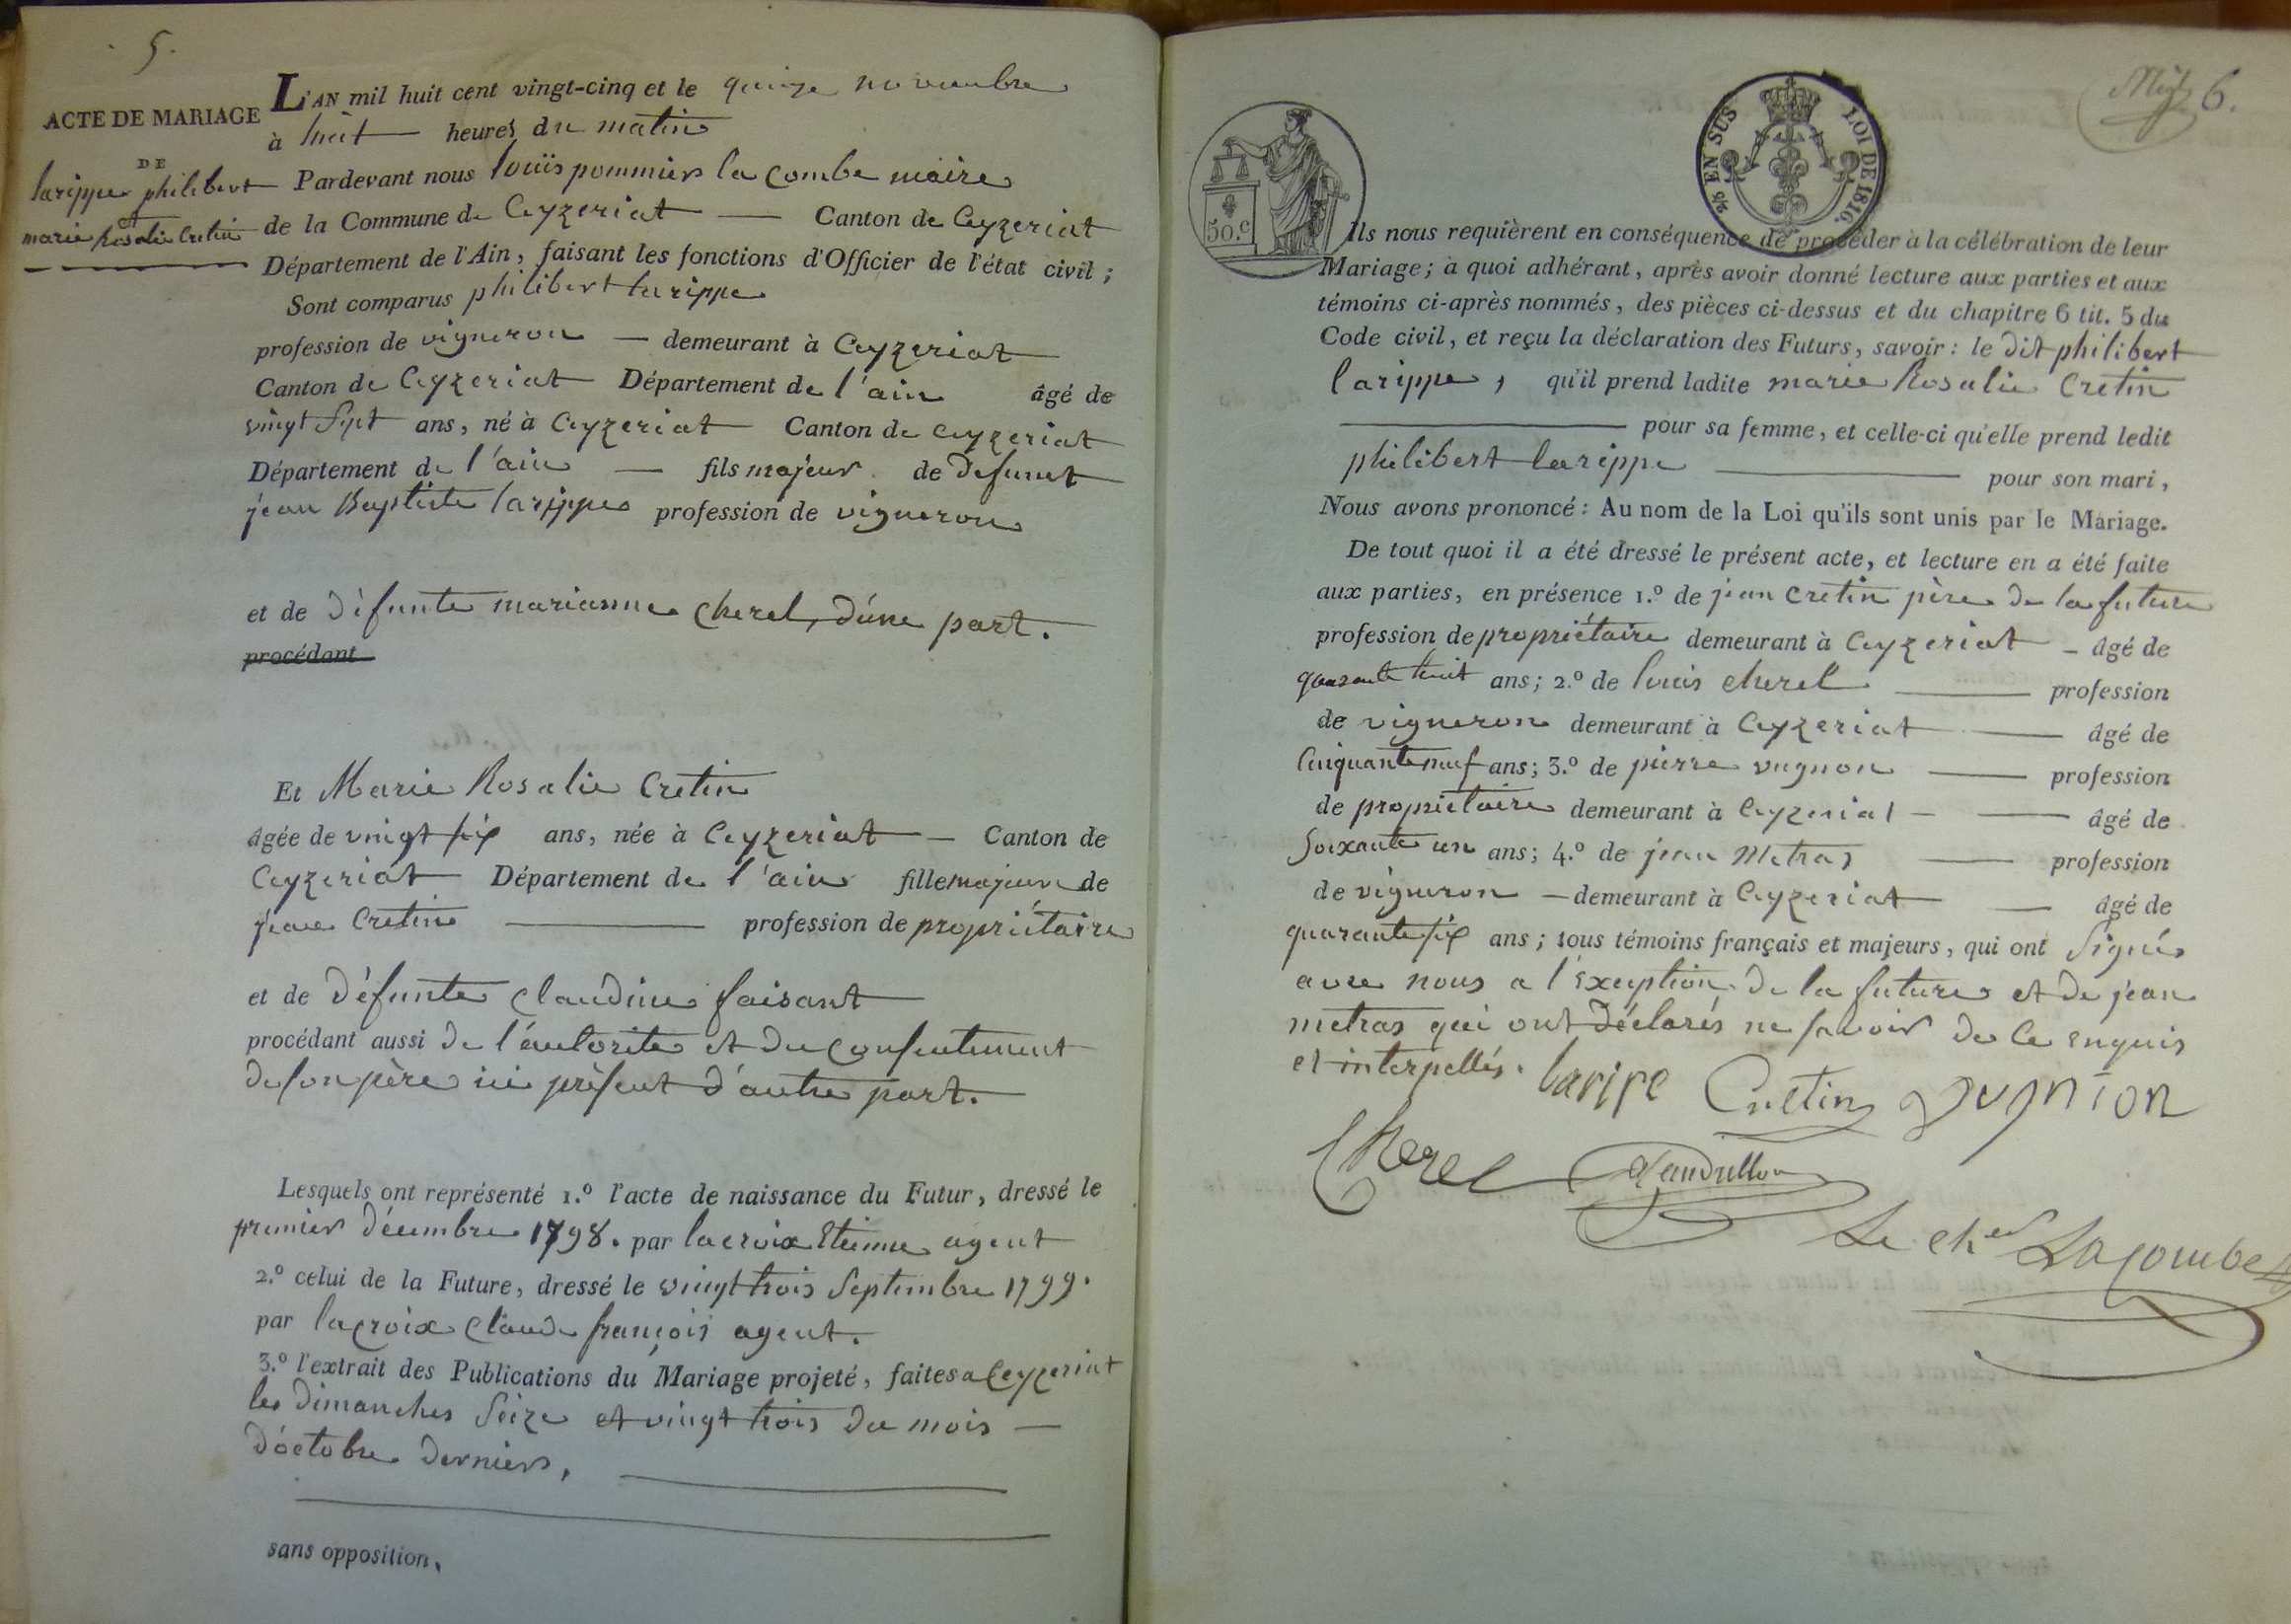 5.
ACTE DE MARIAGE
DE
larippe philibert
et
marie Rosalie Cretin
L'AN mil huit cent vingt-cinq et le quinze novembre
à huit heures du matin
Pardevant nous louis pommier la combe maire
de la Commune de Ceyzeriat Canton de Ceyzeriat
Département de l'Ain, faisant les fonctions d'Officier de l'état civil ;
Sont comparus philibert larippe
profession de vigneron — demeurant à Ceyzeriat
Canton de Ceyzeriat Département de l'ain âgé de
vingt sept ans, né à Ceyzeriat Canton de Ceyzeriat
Département de l'ain — fils majeur de defunct
jean Baptiste larippe profession de vigneron
et de défunte marianne Cherel, d'une part.
procédant
Et Marie Rosalie Cretin
âgée de vingt six ans, née à Ceyzeriat — Canton de
Ceyzeriat Département de l'ain fille majeure de
jean Cretin profession de propriétaire
et de défunte Claudine faisant
procédant aussi de l'autorite et du consentement
de son père ici présent d'autre part.
Lesquels ont représenté 1.º l'acte de naissance du Futur, dressé le
premier décembre 1798. par lacroix Etienne agent
2.º celui de la Future, dressé le vingt trois Septembre 1799.
par lacroix Claude françois agent.
3.º l'extrait des Publications du Mariage projeté, faites a Ceyzeriat
les dimanches Seize et vingt trois du mois —
d'octobre derniers,
sans opposition.
6.
50.c
EN SUS
LOI DE 1816.
Ils nous requièrent en conséquence de procéder à la célébration de leur
Mariage ; à quoi adhérant, après avoir donné lecture aux parties et aux
témoins ci-après nommés, des pièces ci-dessus et du chapitre 6 tit. 5 du
Code civil, et reçu la déclaration des Futurs, savoir : le dit philibert
larippe, qu'il prend ladite marie Rosalie Cretin
pour sa femme, et celle-ci qu'elle prend ledit
philibert larippe pour son mari,
Nous avons prononcé : Au nom de la Loi qu'ils sont unis par le Mariage.
De tout quoi il a été dressé le présent acte, et lecture en a été faite
aux parties, en présence 1.º de jean Cretin père de la future
profession de propriétaire demeurant à Ceyzeriat — âgé de
quarante huit ans ; 2.º de louis cherel profession
de vigneron demeurant à Ceyzeriat âgé de
Cinquante neuf ans ; 3.º de pierre vugnon profession
de propriétaire demeurant à Ceyzeriat âgé de
Soixante un ans ; 4.º de jean Metras profession
de vigneron — demeurant à Ceyzeriat âgé de
quarante six ans ; tous témoins français et majeurs, qui ont Signés
avec nous a l'exception de la future et de jean
metras qui ont déclarés ne savoir de ce enquis
et interpellés. laripe Cretin vugnion
Cherel
Le cher Lacombe